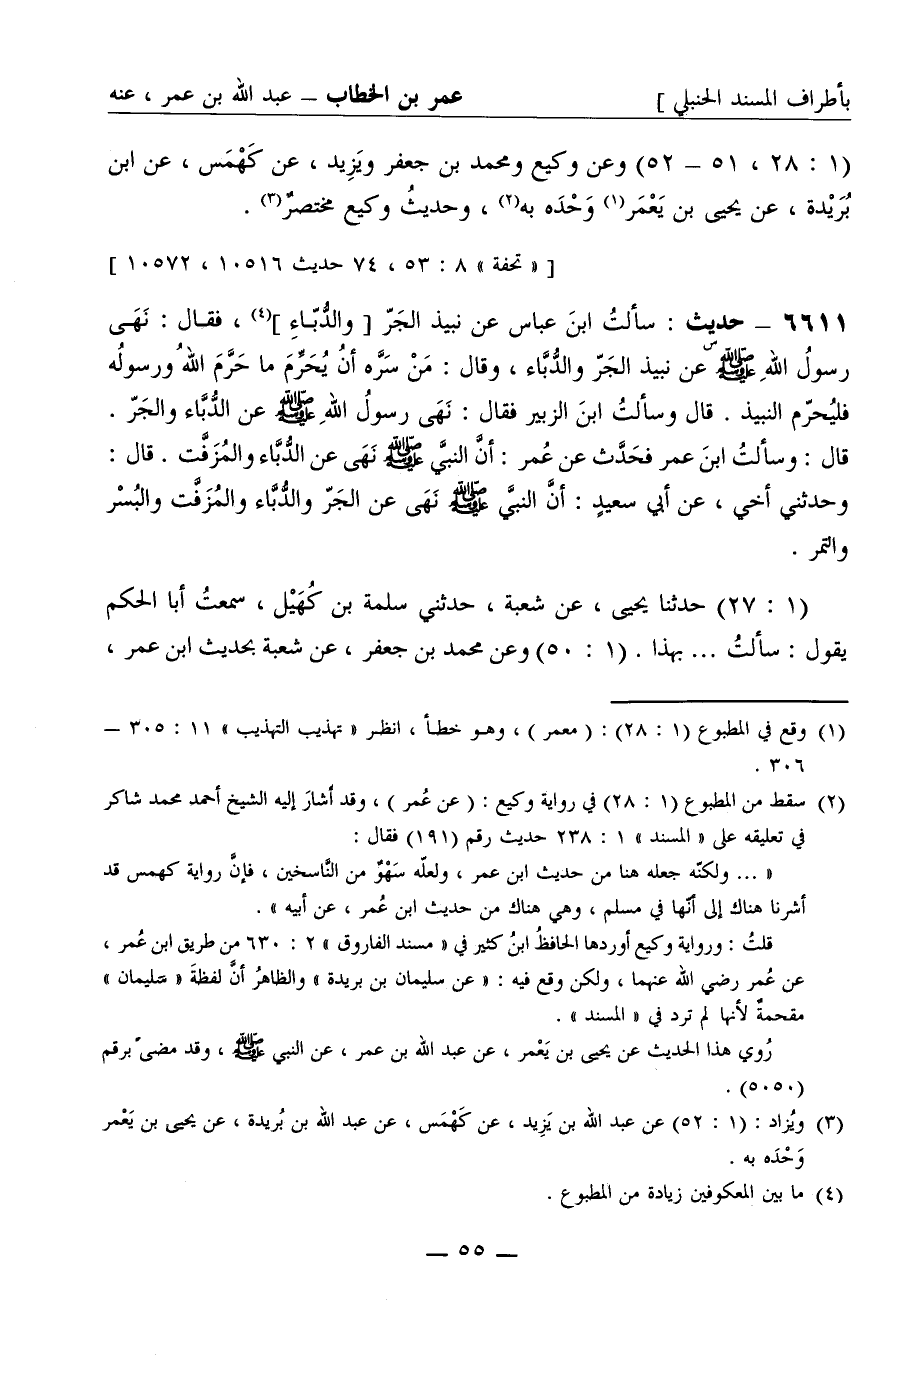 بأطراف المسند الحنبلي ] عمر بن الخطاب ــ عبد الله بن عمر ، عنه
(١ : ٢٨ ، ٥١ ــ ٥٢) وعن وكيع ومحمد بن جعفر ويَزِيد ، عن كَهْمَس ، عن ابن
بُرَيْدة ، عن يحيى بن يَعْمَر(١) وَحْدَه به(٢) ، وحديثُ وكيع مختصرٌ(٣) .
[ « تحفة » ٨ : ٥٣ ، ٧٤ حديث ١٠٥١٦ ، ١٠٥٧٢ ]
٦٦١١ ــ حديث : سألتُ ابنَ عباس عن نبيذ الجَرّ [ والدُّبّاءِ ](٤) ، فقال : نَهَى
رسولُ اللهِ ﷺ عن نبيذ الجَرّ والدُّبَّاء ، وقال : مَنْ سَرَّه أنْ يُحَرِّمَ ما حَرَّمَ اللهُ ورسولُه
فليُحرّم النبيذ . قال وسألتُ ابنَ الزبير فقال : نَهَى رسولُ اللهِ ﷺ عن الدُّبَّاء والجَرّ .
قال : وسألتُ ابنَ عمر فحَدَّث عن عُمر : أنَّ النبيَّ ﷺ نَهَى عن الدُّبَّاء والمُزَفَّت . قال :
وحدثني أخي ، عن أبي سعيدٍ : أنَّ النبيَّ ﷺ نَهَى عن الجَرّ والدُّبَّاء والمُزَفَّت والبُسْر
والتمر .
(١ : ٢٧) حدثنا يحيى ، عن شعبة ، حدثني سلمة بن كُهَيْل ، سمعتُ أبا الحكم
يقول : سألتُ ... بهذا . (١ : ٥٠) وعن محمد بن جعفر ، عن شعبة بحديث ابن عمر ،
(١) وقع في المطبوع (١ : ٢٨) : ( معمر ) ، وهو خطأ ، انظر « تهذيب التهذيب » ١١ : ٣٠٥ ــ
٣٠٦ .
(٢) سقط من المطبوع (١ : ٢٨) في رواية وكيع : ( عن عُمر ) ، وقد أشارَ إليه الشيخ أحمد محمد شاكر
في تعليقه على « المسند » ١ : ٢٣٨ حديث رقم (١٩١) فقال :
« ... ولكنّه جعله هنا من حديث ابن عمر ، ولعلّه سَهْوٌ من النَّاسخين ، فإنَّ رواية كهمس قد
أشرنا هناك إلى أنّها في مسلم ، وهي هناك من حديث ابن عُمر ، عن أبيه » .
قلتُ : ورواية وكيع أوردها الحافظُ ابنُ كثير في « مسند الفاروق » ٢ : ٦٣٠ من طريق ابن عُمر ،
عن عُمر رضي الله عنهما ، ولكن وقع فيه : « عن سليمان بن بريدة » والظاهرُ أنَّ لفظةَ « سَليمان »
مقحمةٌ لأنها لم ترد في « المسند » .
رُوي هذا الحديث عن يحيى بن يَعْمر ، عن عبد الله بن عمر ، عن النبي ﷺ ، وقد مضى برقم
(٥٠٥٠) .
(٣) ويُزاد : (١ : ٥٢) عن عبد الله بن يَزِيد ، عن كَهْمَس ، عن عبد الله بن بُريدة ، عن يحيى بن يَعْمر
وَحْدَه به .
(٤) ما بين المعكوفين زيادة من المطبوع .
ــ ٥٥ ــ